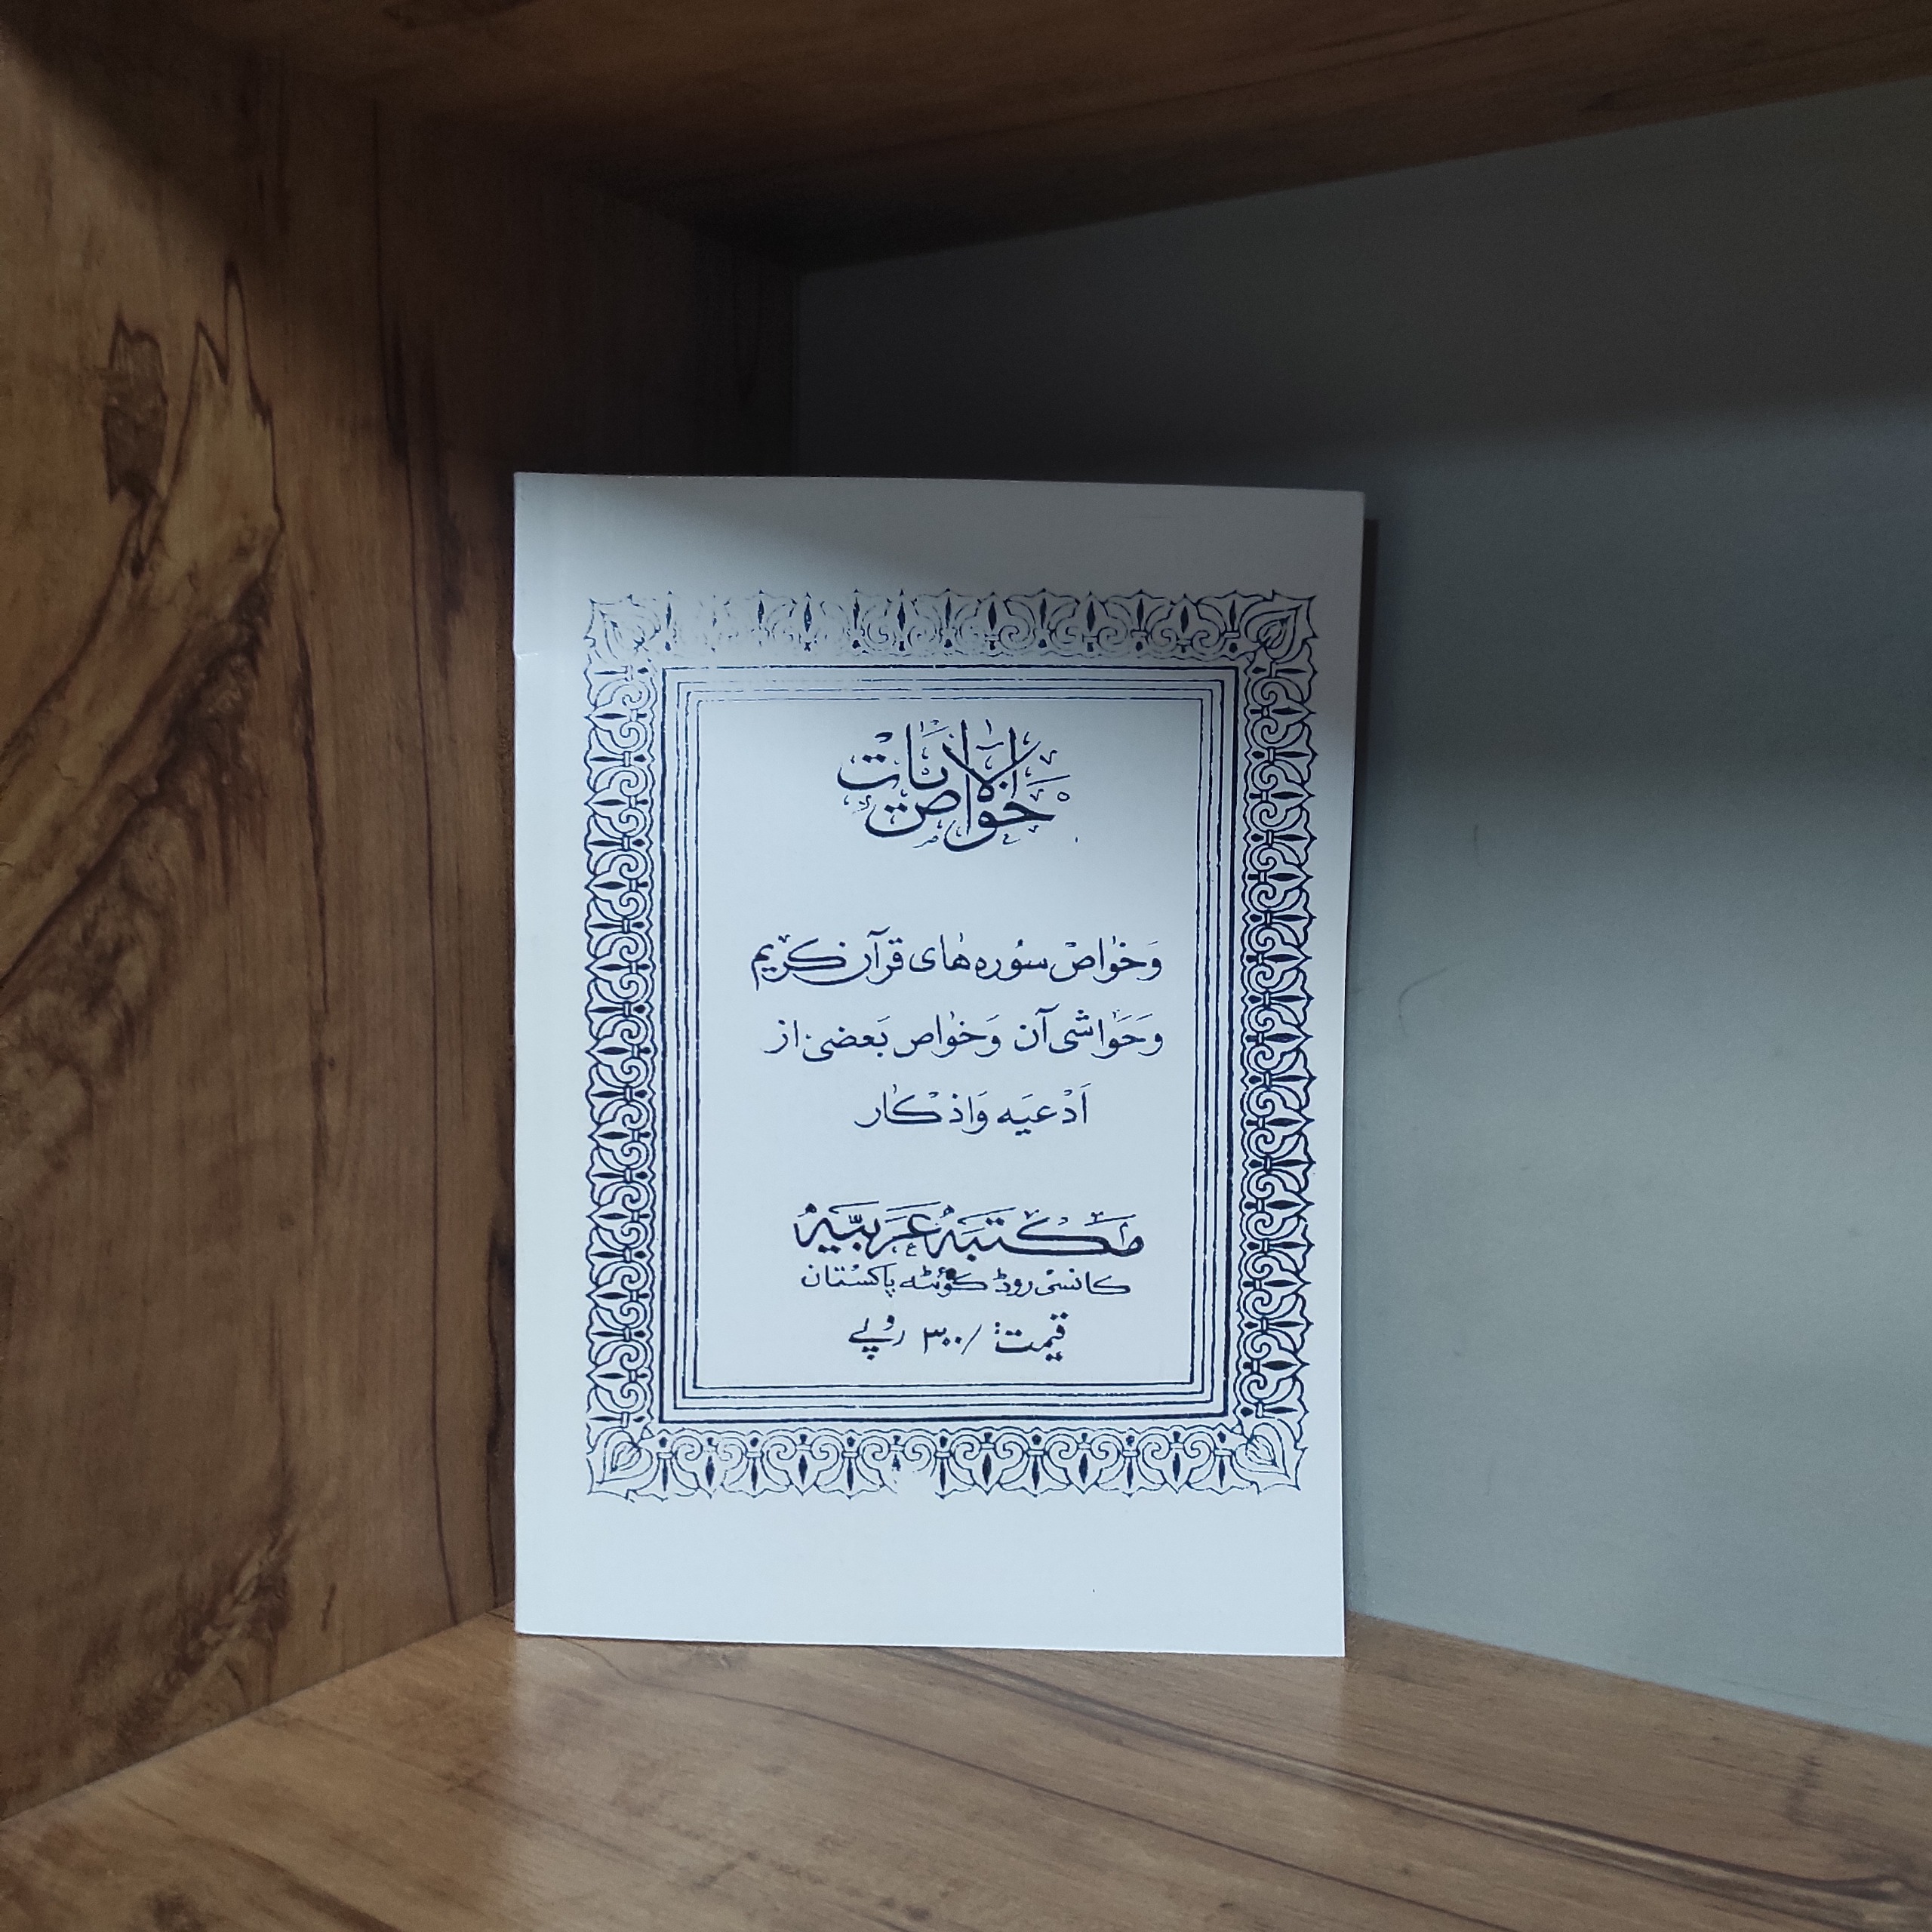 خواص الآیات
وَخوٰاصْ سُوره هٰای قرآن کریم
وَحَوٰاشی آن وَخوٰاص بَعضی از
اَدْعیَه وَاذْکٰار
مَکتَبَهٔ عَرَبیَّه
کانسی روڈ کوئٹه پاکستان
قیمت: /۳۰۰ روپے